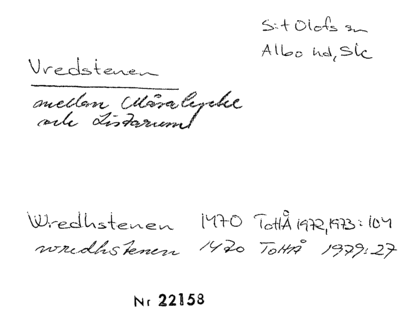 S:t Olofs sn
Albo hd, Sk
Vredstenen
mellan Måralycke
och Listarum
Wredhstenen 1470 ToHÅ 1972,1973:104
wredhstenen 1470 ToHÅ 1979:27
Nr 22158